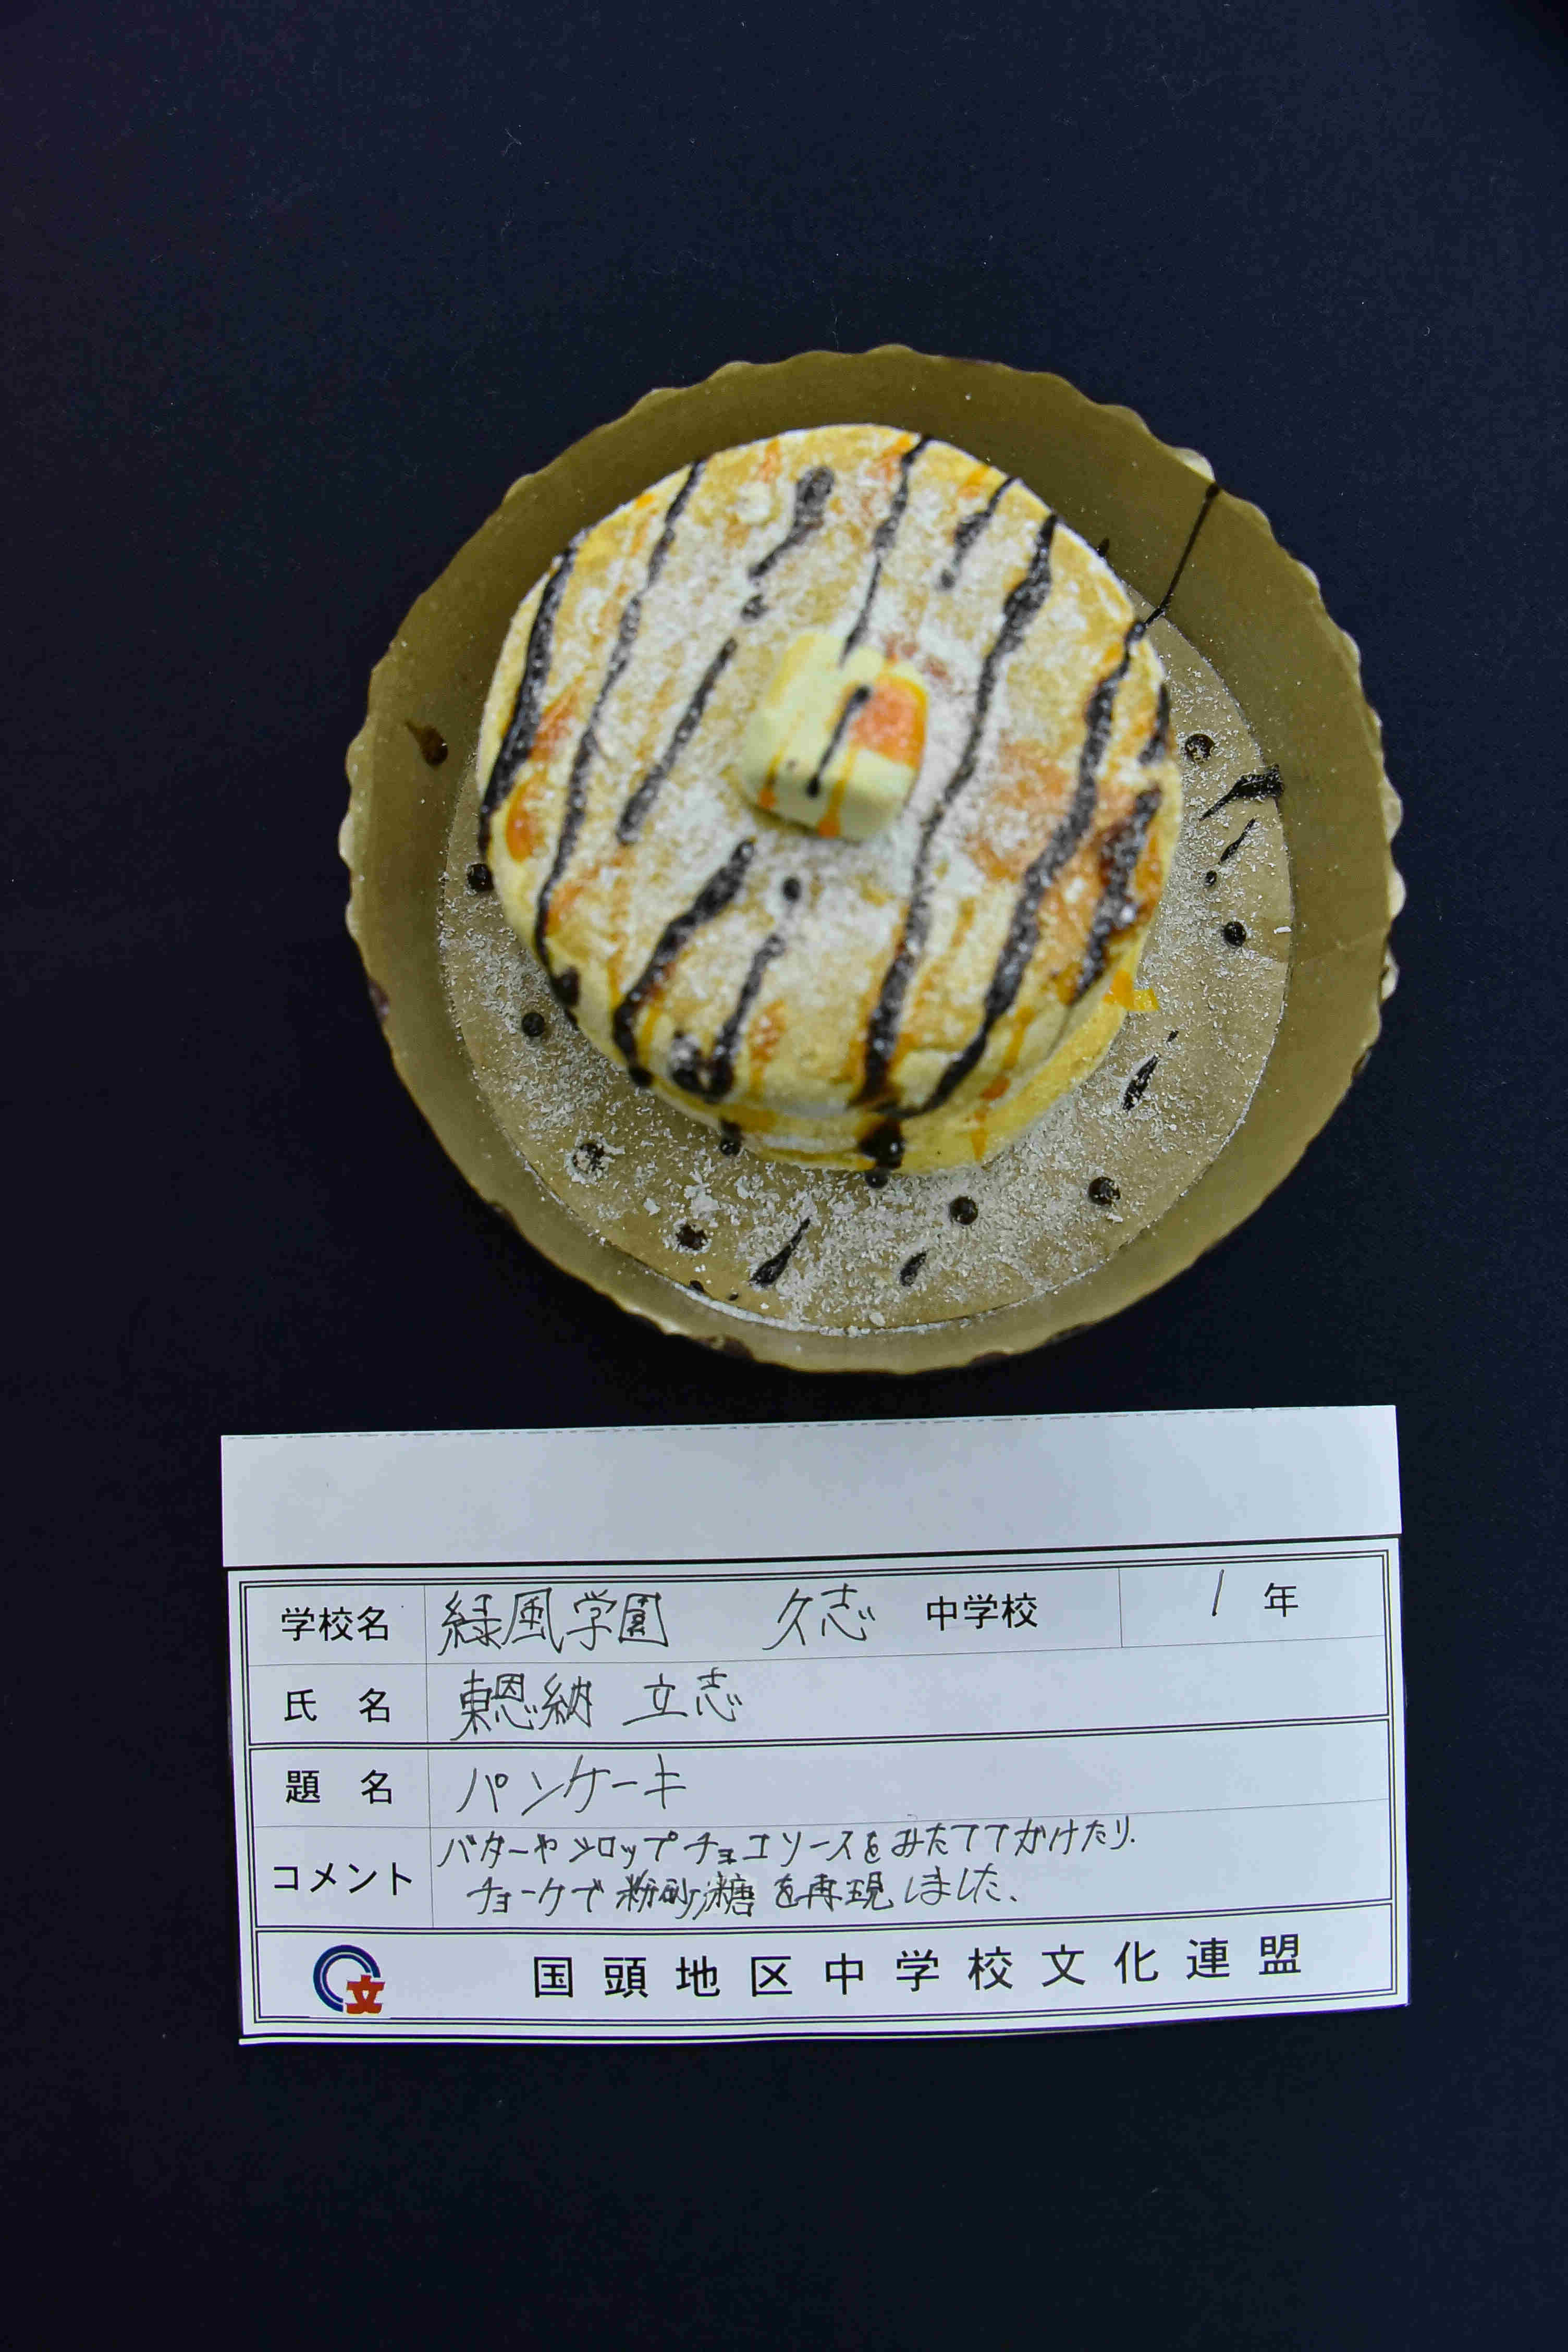 学校名 緑風学園 久志 中学校 1 年
氏 名 東恩納 立志
題 名 パンケーキ
コメント バターやシロップチョコソースをみたててかけたり、
チョークで粉砂糖を再現しました、
文 国頭地区中学校文化連盟